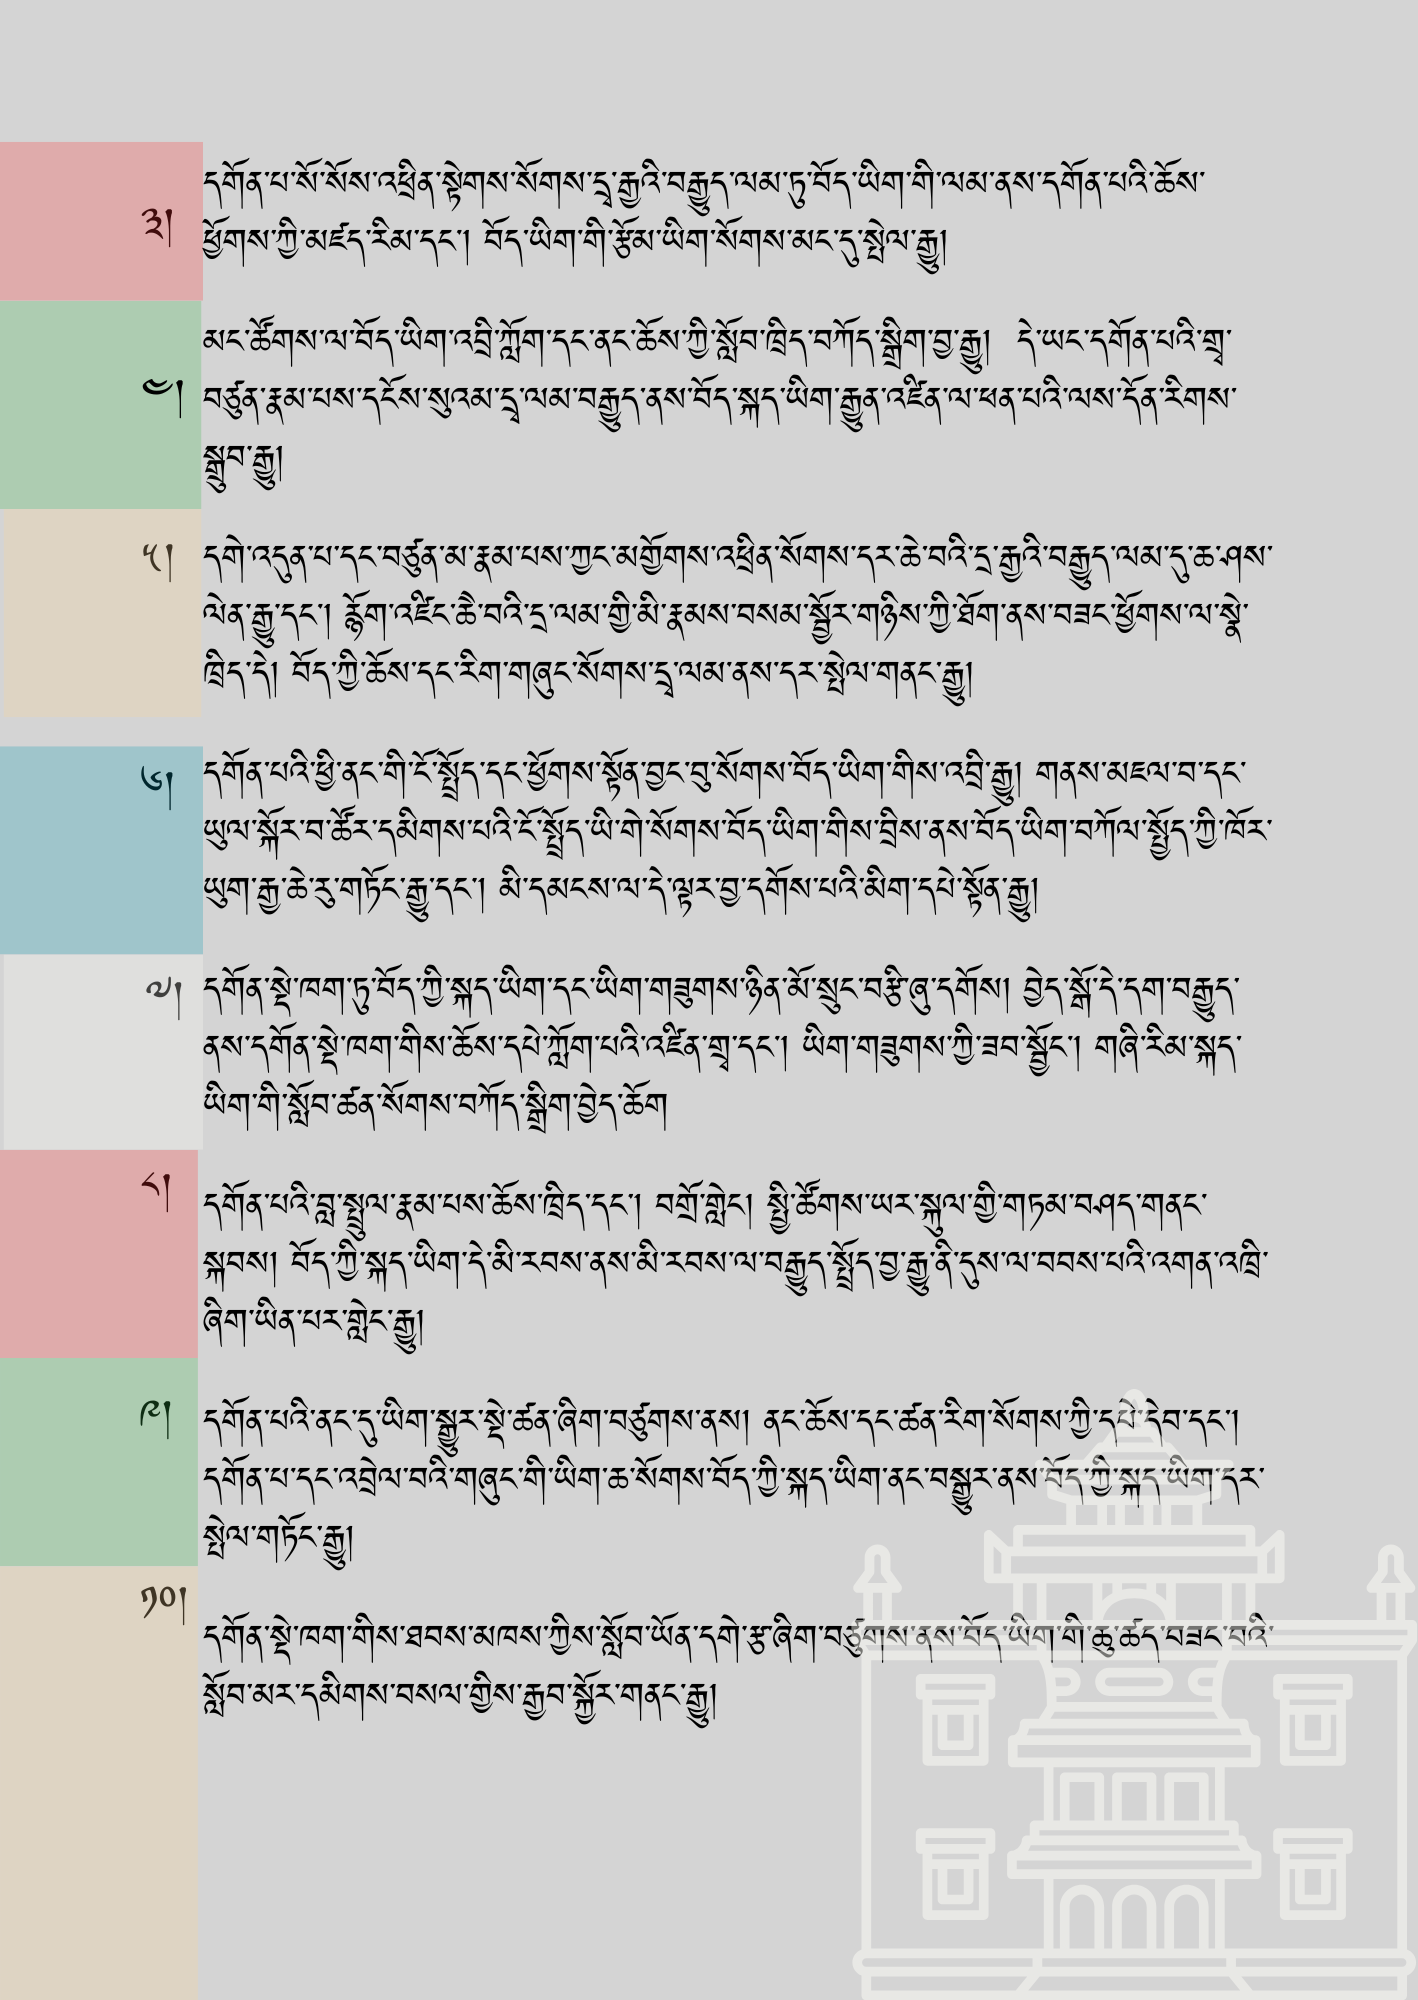 ༣། དགོན་པ་སོ་སོས་འཕྲིན་སྟེགས་སོགས་དྲྭ་རྒྱའི་བརྒྱུད་ལམ་ཏུ་བོད་ཡིག་གི་ལམ་ནས་དགོན་པའི་ཆོས་
ཕྱོགས་ཀྱི་མཛད་རིམ་དང་། བོད་ཡིག་གི་རྩོམ་ཡིག་སོགས་མང་དུ་སྤེལ་རྒྱུ།
མང་ཚོགས་ལ་བོད་ཡིག་འབྲི་ཀློག་དང་ནང་ཆོས་ཀྱི་སློབ་ཁྲིད་བཀོད་སྒྲིག་བྱ་རྒྱུ། དེ་ཡང་དགོན་པའི་གྲྭ་
༤། བཙུན་རྣམ་པས་དངོས་སུའམ་དྲྭ་ལམ་བརྒྱུད་ནས་བོད་སྐད་ཡིག་རྒྱུན་འཛིན་ལ་ཕན་པའི་ལས་དོན་རིགས་
སྒྲུབ་རྒྱུ།
༥། དགེ་འདུན་པ་དང་བཙུན་མ་རྣམ་པས་ཀྱང་མགྱོགས་འཕྲིན་སོགས་དར་ཆེ་བའི་དྲ་རྒྱའི་བརྒྱུད་ལམ་དུ་ཆ་ཤས་
ལེན་རྒྱུ་དང་། རྙོག་འཛིང་ཆེ་བའི་དྲ་ལམ་གྱི་མི་རྣམས་བསམ་སྦྱོར་གཉིས་ཀྱི་ཐོག་ནས་བཟང་ཕྱོགས་ལ་སྣེ་
ཁྲིད་དེ། བོད་ཀྱི་ཆོས་དང་རིག་གཞུང་སོགས་དྲྭ་ལམ་ནས་དར་སྤེལ་གནང་རྒྱུ།
༦། དགོན་པའི་ཕྱི་ནང་གི་ངོ་སྤྲོད་དང་ཕྱོགས་སྟོན་བྱང་བུ་སོགས་བོད་ཡིག་གིས་འབྲི་རྒྱུ། གནས་མཇལ་བ་དང་
ཡུལ་སྐོར་བ་ཚོར་དམིགས་པའི་ངོ་སྤྲོད་ཡི་གེ་སོགས་བོད་ཡིག་གིས་བྲིས་ནས་བོད་ཡིག་བཀོལ་སྤྱོད་ཀྱི་ཁོར་
ཡུག་རྒྱ་ཆེ་རུ་གཏོང་རྒྱུ་དང་། མི་དམངས་ལ་དེ་ལྟར་བྱ་དགོས་པའི་མིག་དཔེ་སྟོན་རྒྱུ།
༧། དགོན་སྡེ་ཁག་ཏུ་བོད་ཀྱི་སྐད་ཡིག་དང་ཡིག་གཟུགས་ཉིན་མོ་སྲུང་བརྩི་ཞུ་དགོས། བྱེད་སྒོ་དེ་དག་བརྒྱུད་
ནས་དགོན་སྡེ་ཁག་གིས་ཆོས་དཔེ་ཀློག་པའི་འཛིན་གྲྭ་དང་། ཡིག་གཟུགས་ཀྱི་ཟབ་སྦྱོང་། གཞི་རིམ་སྐད་
ཡིག་གི་སློབ་ཚན་སོགས་བཀོད་སྒྲིག་བྱེད་ཆོག
༨། དགོན་པའི་བླ་སྤྲུལ་རྣམ་པས་ཆོས་ཁྲིད་དང་། བགྲོ་གླེང། སྤྱི་ཚོགས་ཡར་སྐུལ་གྱི་གཏམ་བཤད་གནང་
སྐབས། བོད་ཀྱི་སྐད་ཡིག་དེ་མི་རབས་ནས་མི་རབས་ལ་བརྒྱུད་སྤྲོད་བྱ་རྒྱུ་ནི་དུས་ལ་བབས་པའི་འགན་འཁྲི་
ཞིག་ཡིན་པར་གླེང་རྒྱུ།
༩། དགོན་པའི་ནང་དུ་ཡིག་སྒྱུར་སྡེ་ཚན་ཞིག་བཙུགས་ནས། ནང་ཆོས་དང་ཚན་རིག་སོགས་ཀྱི་དཔེ་དེབ་དང་།
དགོན་པ་དང་འབྲེལ་བའི་གཞུང་གི་ཡིག་ཆ་སོགས་བོད་ཀྱི་སྐད་ཡིག་ནང་བསྒྱུར་ནས་བོད་ཀྱི་སྐད་ཡིག་དར་
སྤེལ་གཏོང་རྒྱུ།
༡༠། དགོན་སྡེ་ཁག་གིས་ཐབས་མཁས་ཀྱིས་སློབ་ཡོན་དགེ་རྩ་ཞིག་བཙུགས་ནས་བོད་ཡིག་གི་ཆུ་ཚད་བཟང་བའི་
སློབ་མར་དམིགས་བསལ་གྱིས་རྒྱབ་སྐྱོར་གནང་རྒྱུ།